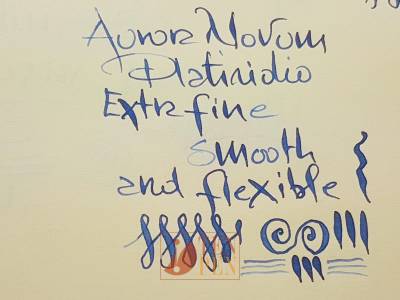 Aurora Novum
Platiridio
Extra fine
smooth
and flexible